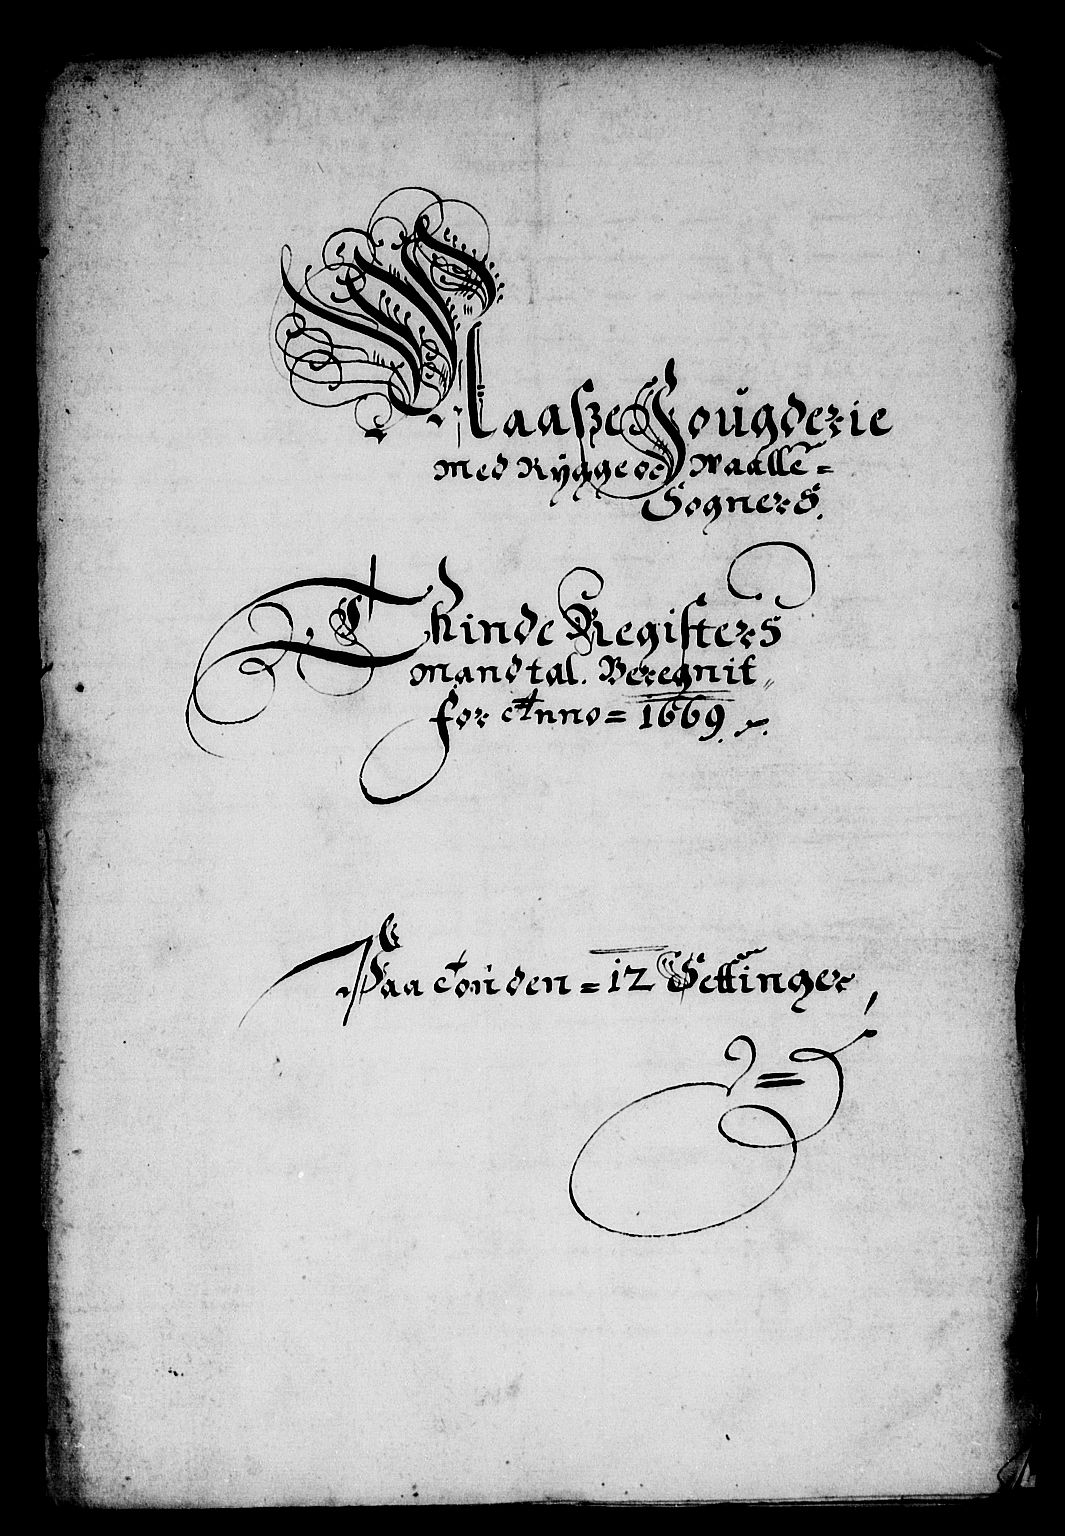 Maasße Fougderie
Med Rygge oc Waalle =
Sogners.
Thinde Registers
Mandtal. Beregnit
for Anno = 1669.
Paa Tonden = 12 Settinger